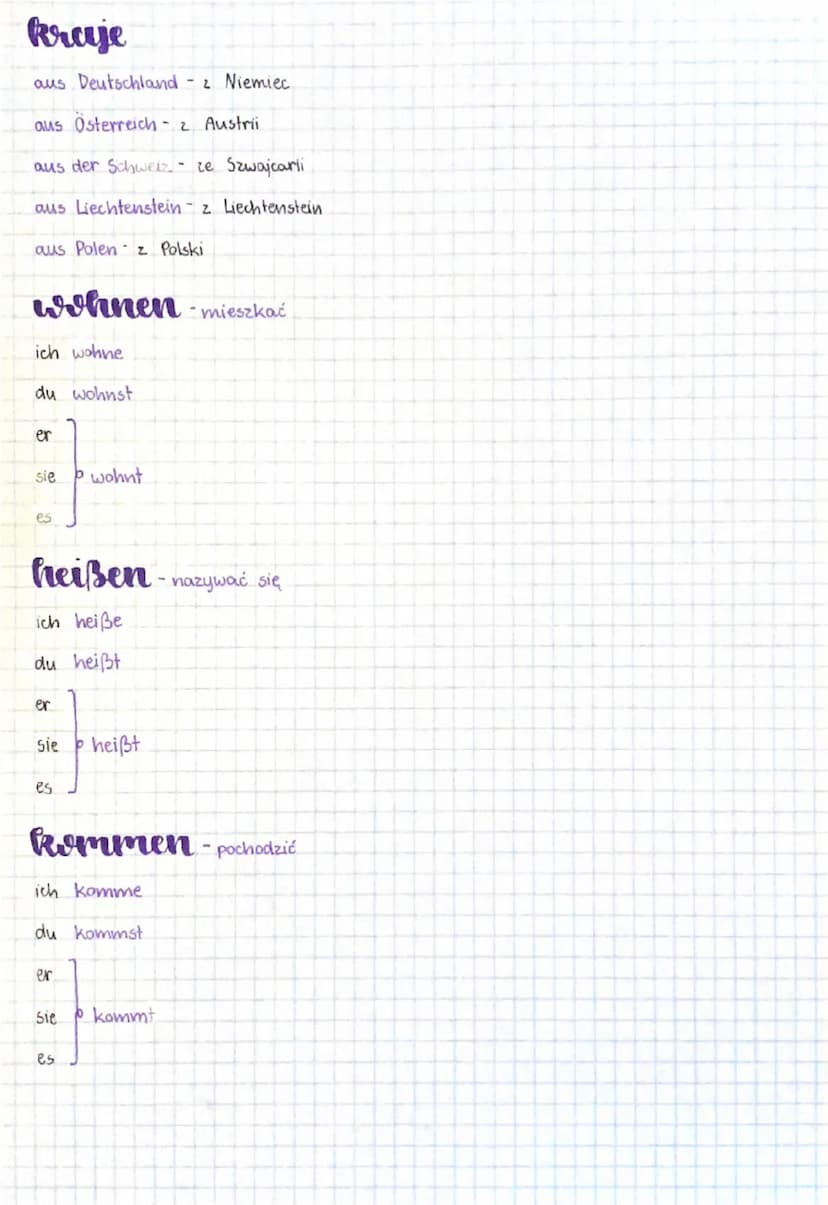 kraje
aus Deutschland - z Niemiec
aus Österreich - z Austrii
aus der Schweiz - ze Szwajcarii
aus Liechtenstein - z Liechtenstein
aus Polen - z Polski
wohnen - mieszkać
ich wohne
du wohnst
er
sie wohnt
es
heißen - nazywać się
ich heiße
du heißt
er
sie heißt
es
kommen - pochodzić
ich komme
du kommst
er
sie kommt
es